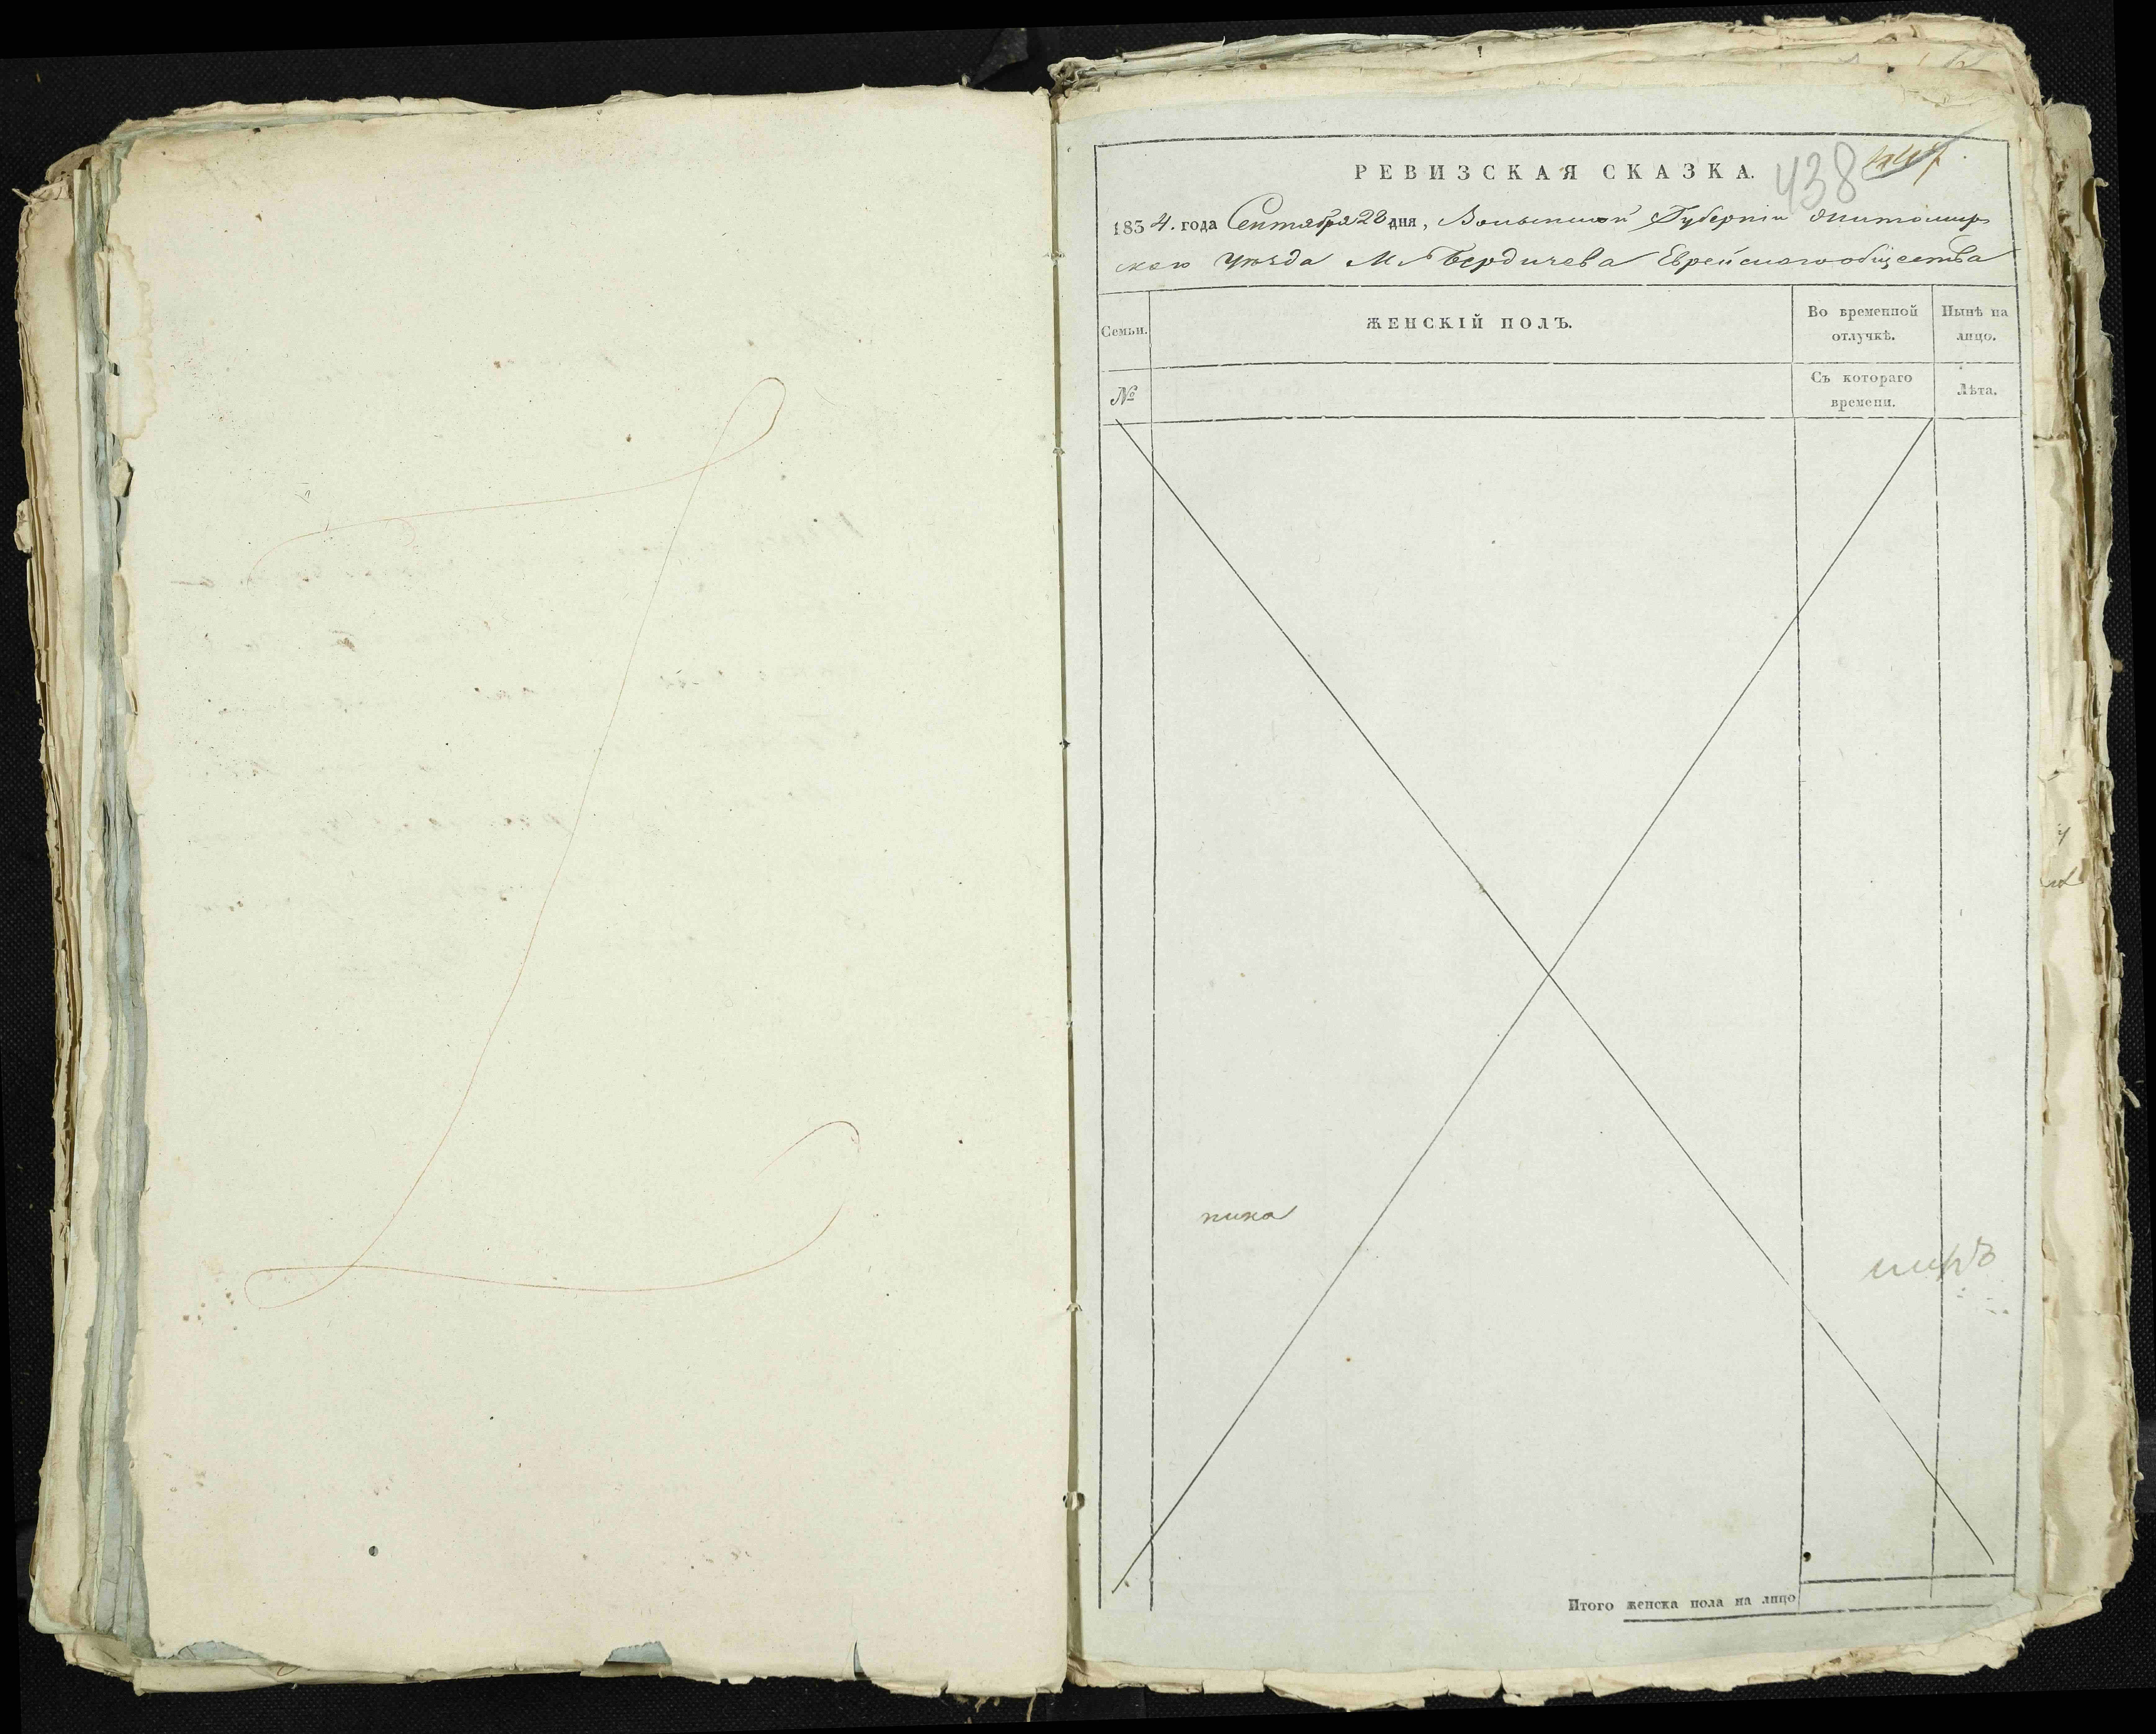 РЕВИЗСКАЯ СКАЗКА. 438
1834. года Сентября 28 дня, Волынской Губерніи Житомир
скаго Уѣзда М. Бердичева Еврейскаго общества
Семьи. ЖЕНСКІЙ ПОЛЪ. Во временной отлучкѣ. Нынѣ на лицо.
№ Съ котораго времени. Лѣта.
ника
миръ
Итого женска пола на лицо